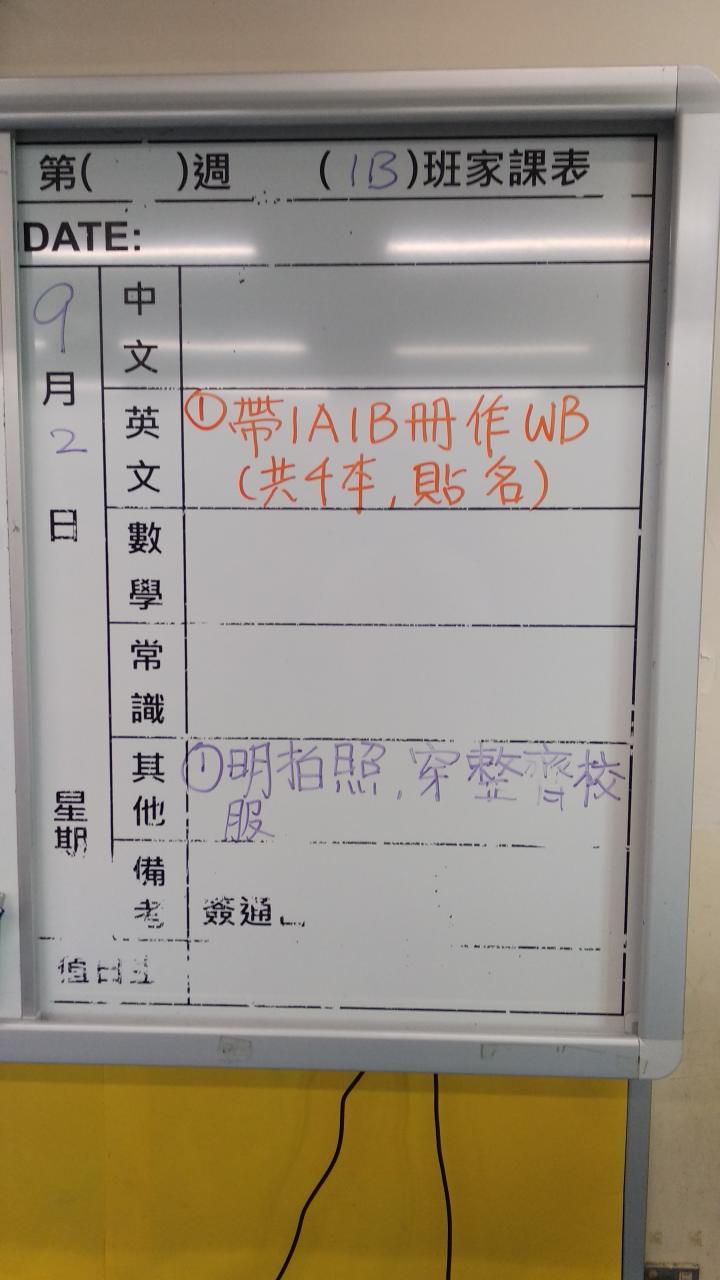 第( )週 (1B)班家課表
DATE:
9月2日
星期
中文
英文
①帶1A1B冊作WB
(共4本,貼名)
數學
常識
其他
①明拍照,穿整齊校
服
備考
簽通
值日生